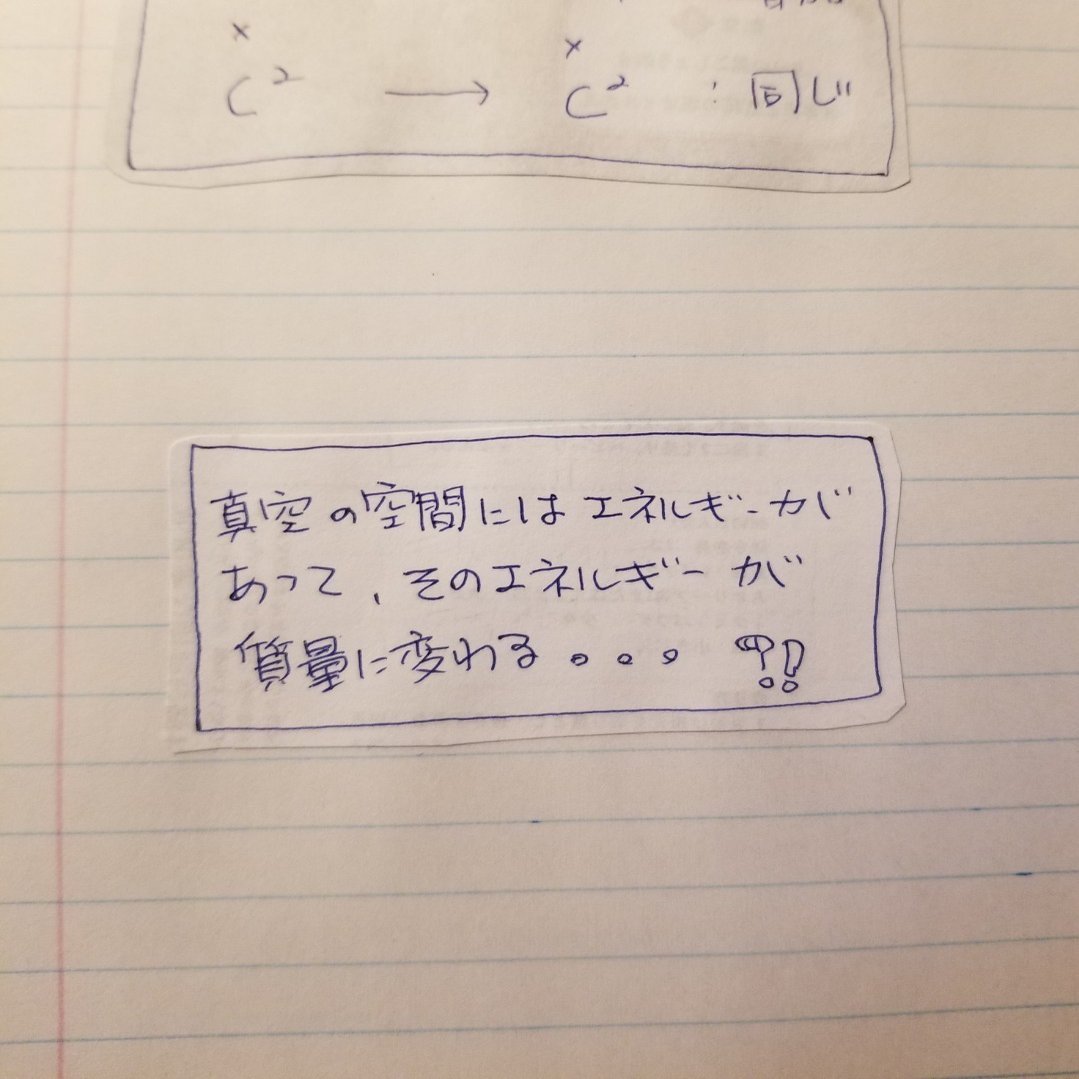 ×
×
C² → C² : 同じ
真空の空間にはエネルギーが
あって、そのエネルギーが
質量に変わる。。。 ?!